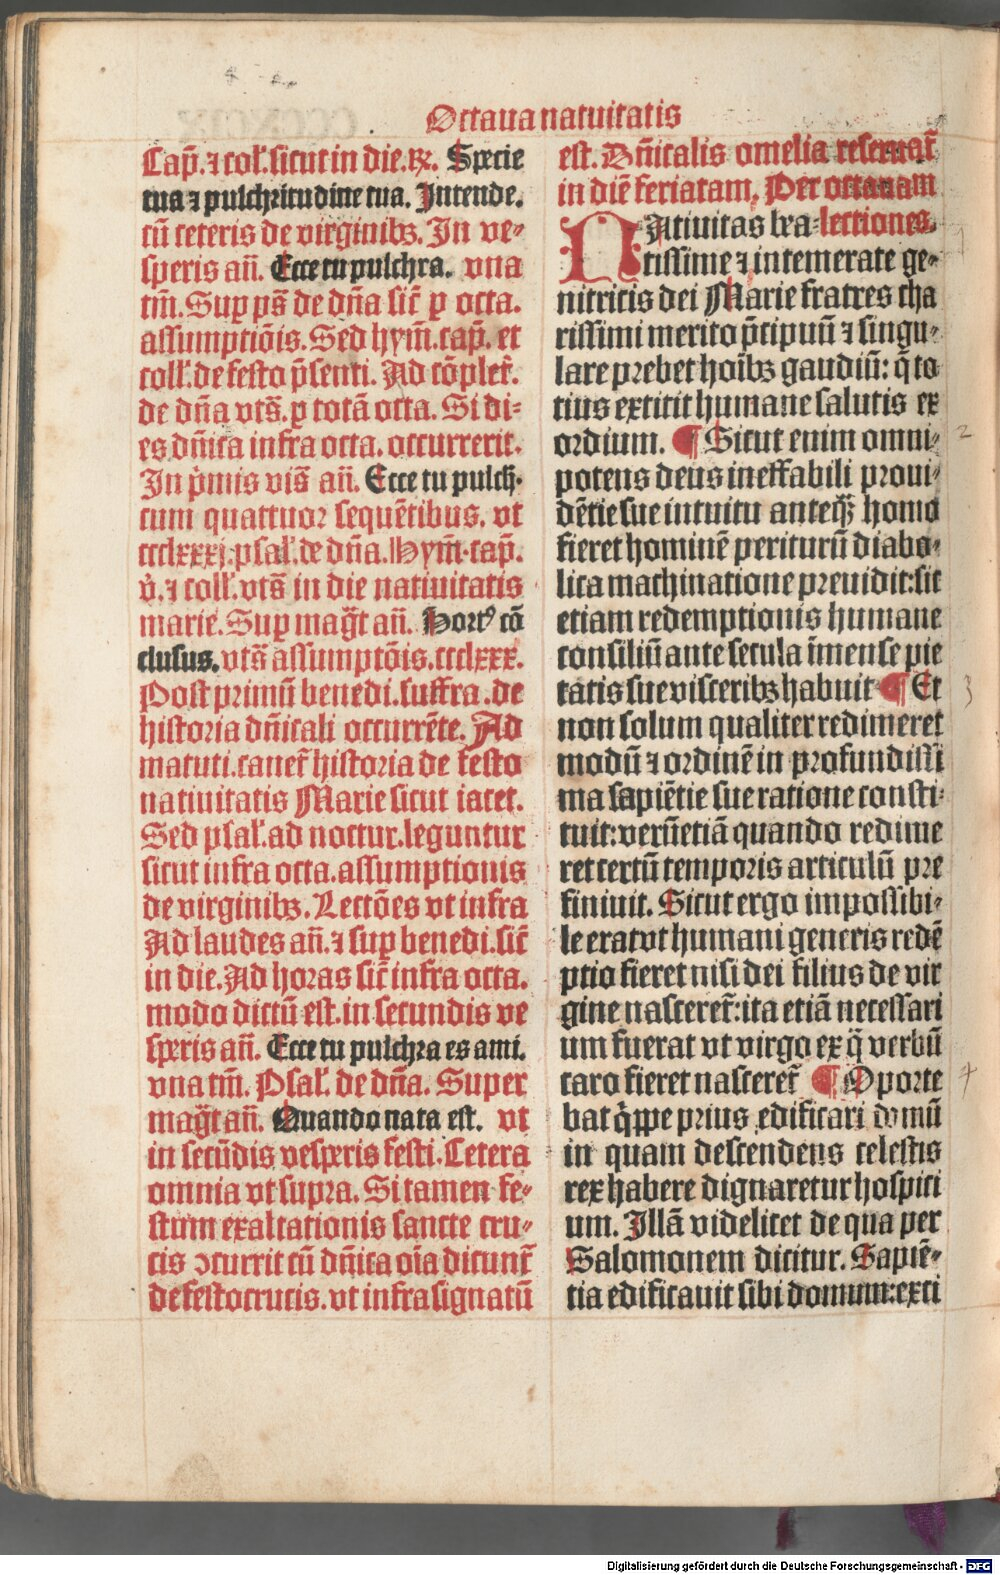 Octaua natuitatis
Cap̄. ⁊ col̄. sicut in die. ℞. Specie
tua ⁊ pulchritudine tua. Intende.
cū ceteris de virginibꝫ. In ve⸗
speris añ. Ecce tu pulchra. vna
tm̄. Sup ps̄ de dn̄a sic̄ ꝑ octa.
assumptiōis. Sed hym̄. cap̄. et
coll̄. de festo p̄senti. Ad cōplet̄.
de dn̄a vts̄. ꝑ totā octa. Si di⸗
es dn̄ica infra octa. occurrerit.
In p̄mis vis̄ añ. Ecce tu pulch.
cum quattuor sequētibus. vt
ccclxxxj. psal̄. de dn̄a. Hym̄. cap̄.
v̄. ⁊ coll̄. vts̄ in die natiuitatis
marie. Sup maḡt añ. Hortꝰ cō
clusus. vts̄ assumptōis. ccclxxx.
Post primū benedi. suffra. de
historia dn̄icali occurrēte. Ad
matuti. canet̄ historia de festo
natiuitatis Marie sicut iacet.
Sed psal̄. ad noctur. leguntur
sicut infra octa. assumptionis
de virginibꝫ. Lectōes vt infra
Ad laudes añ. ⁊ sup benedi. sic̄
in die. Ad horas sic̄ infra octa.
modo dictū est. in secundis ve
speris añ. Ecce tu pulchra es ami.
vna tm̄. Psal̄. de dn̄a. Super
maḡt añ. Quando nata est. vt
in secūdis vesperis festi. Cetera
omnia vt supra. Si tamen fe⸗
stum exaltationis sancte cru⸗
cis ↄcurrit cū dn̄ica oīa dicunt̄
de festo crucis. vt infra signatū
est. Dn̄icalis omelia reseruat̄
in diē feriatam. Per octauam
lectiones.
NAtiuitas bea⸗
tissime ⁊ intemerate ge⸗
nitricis dei Marie fratres cha
rissimi merito p̄cipuū ⁊ singu⸗
lare prebet hoībꝫ gaudiū: q̄ to
tius extitit humane salutis ex
ordium. ¶ Sicut enim omni⸗
potens deus ineffabili proui⸗
dētie sue intuitu anteqꝫ homo
fieret hominē periturū diabo⸗
lica machinatione preuidit: sic
etiam redemptionis humane
consiliū ante secula īmense pie
tatis sue visceribꝫ habuit ¶ Et
non solum qualiter redimeret
modū ⁊ ordinē in profundissi
ma sapiētie sue ratione consti⸗
tuit: verūetiā quando redime
ret certū temporis articulū pre
finiuit. Sicut ergo impossibi⸗
le erat vt humani generis redē
ptio fieret nisi dei filius de vir
gine nasceret̄: ita etiā necessari
um fuerat vt virgo ex q̄ verbū
caro fieret nasceret̄ ¶ Oporte
bat q̄ppe prius edificari domū
in quam descendens celestis
rex habere dignaretur hospiti
um. Illā videlicet de qua per
Salomonem dicitur. Sapiē⸗
tia edificauit sibi domum: exci
2
3
4
Digitalisierung gefördert durch die Deutsche Forschungsgemeinschaft - DFG